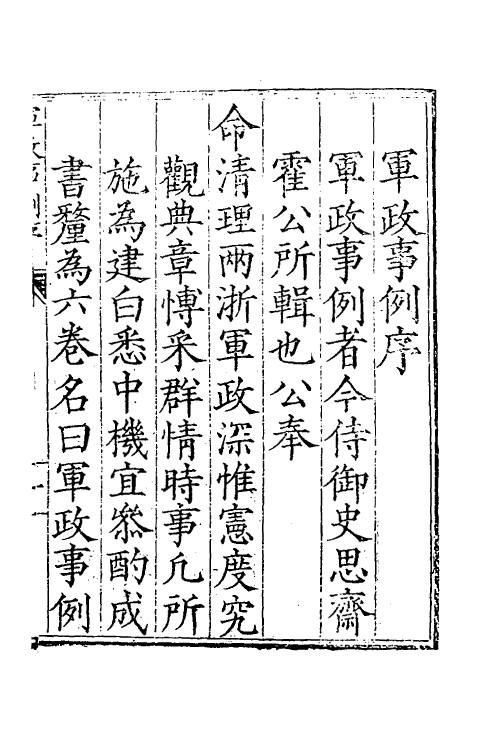 軍政事例序
軍政事例者今侍御史思齋
霍公所輯也公奉
命清理兩浙軍政深惟憲度究
觀典章愽采群情時事凢所
施為建白悉中機宜叅酌成
書釐為六卷名曰軍政事例